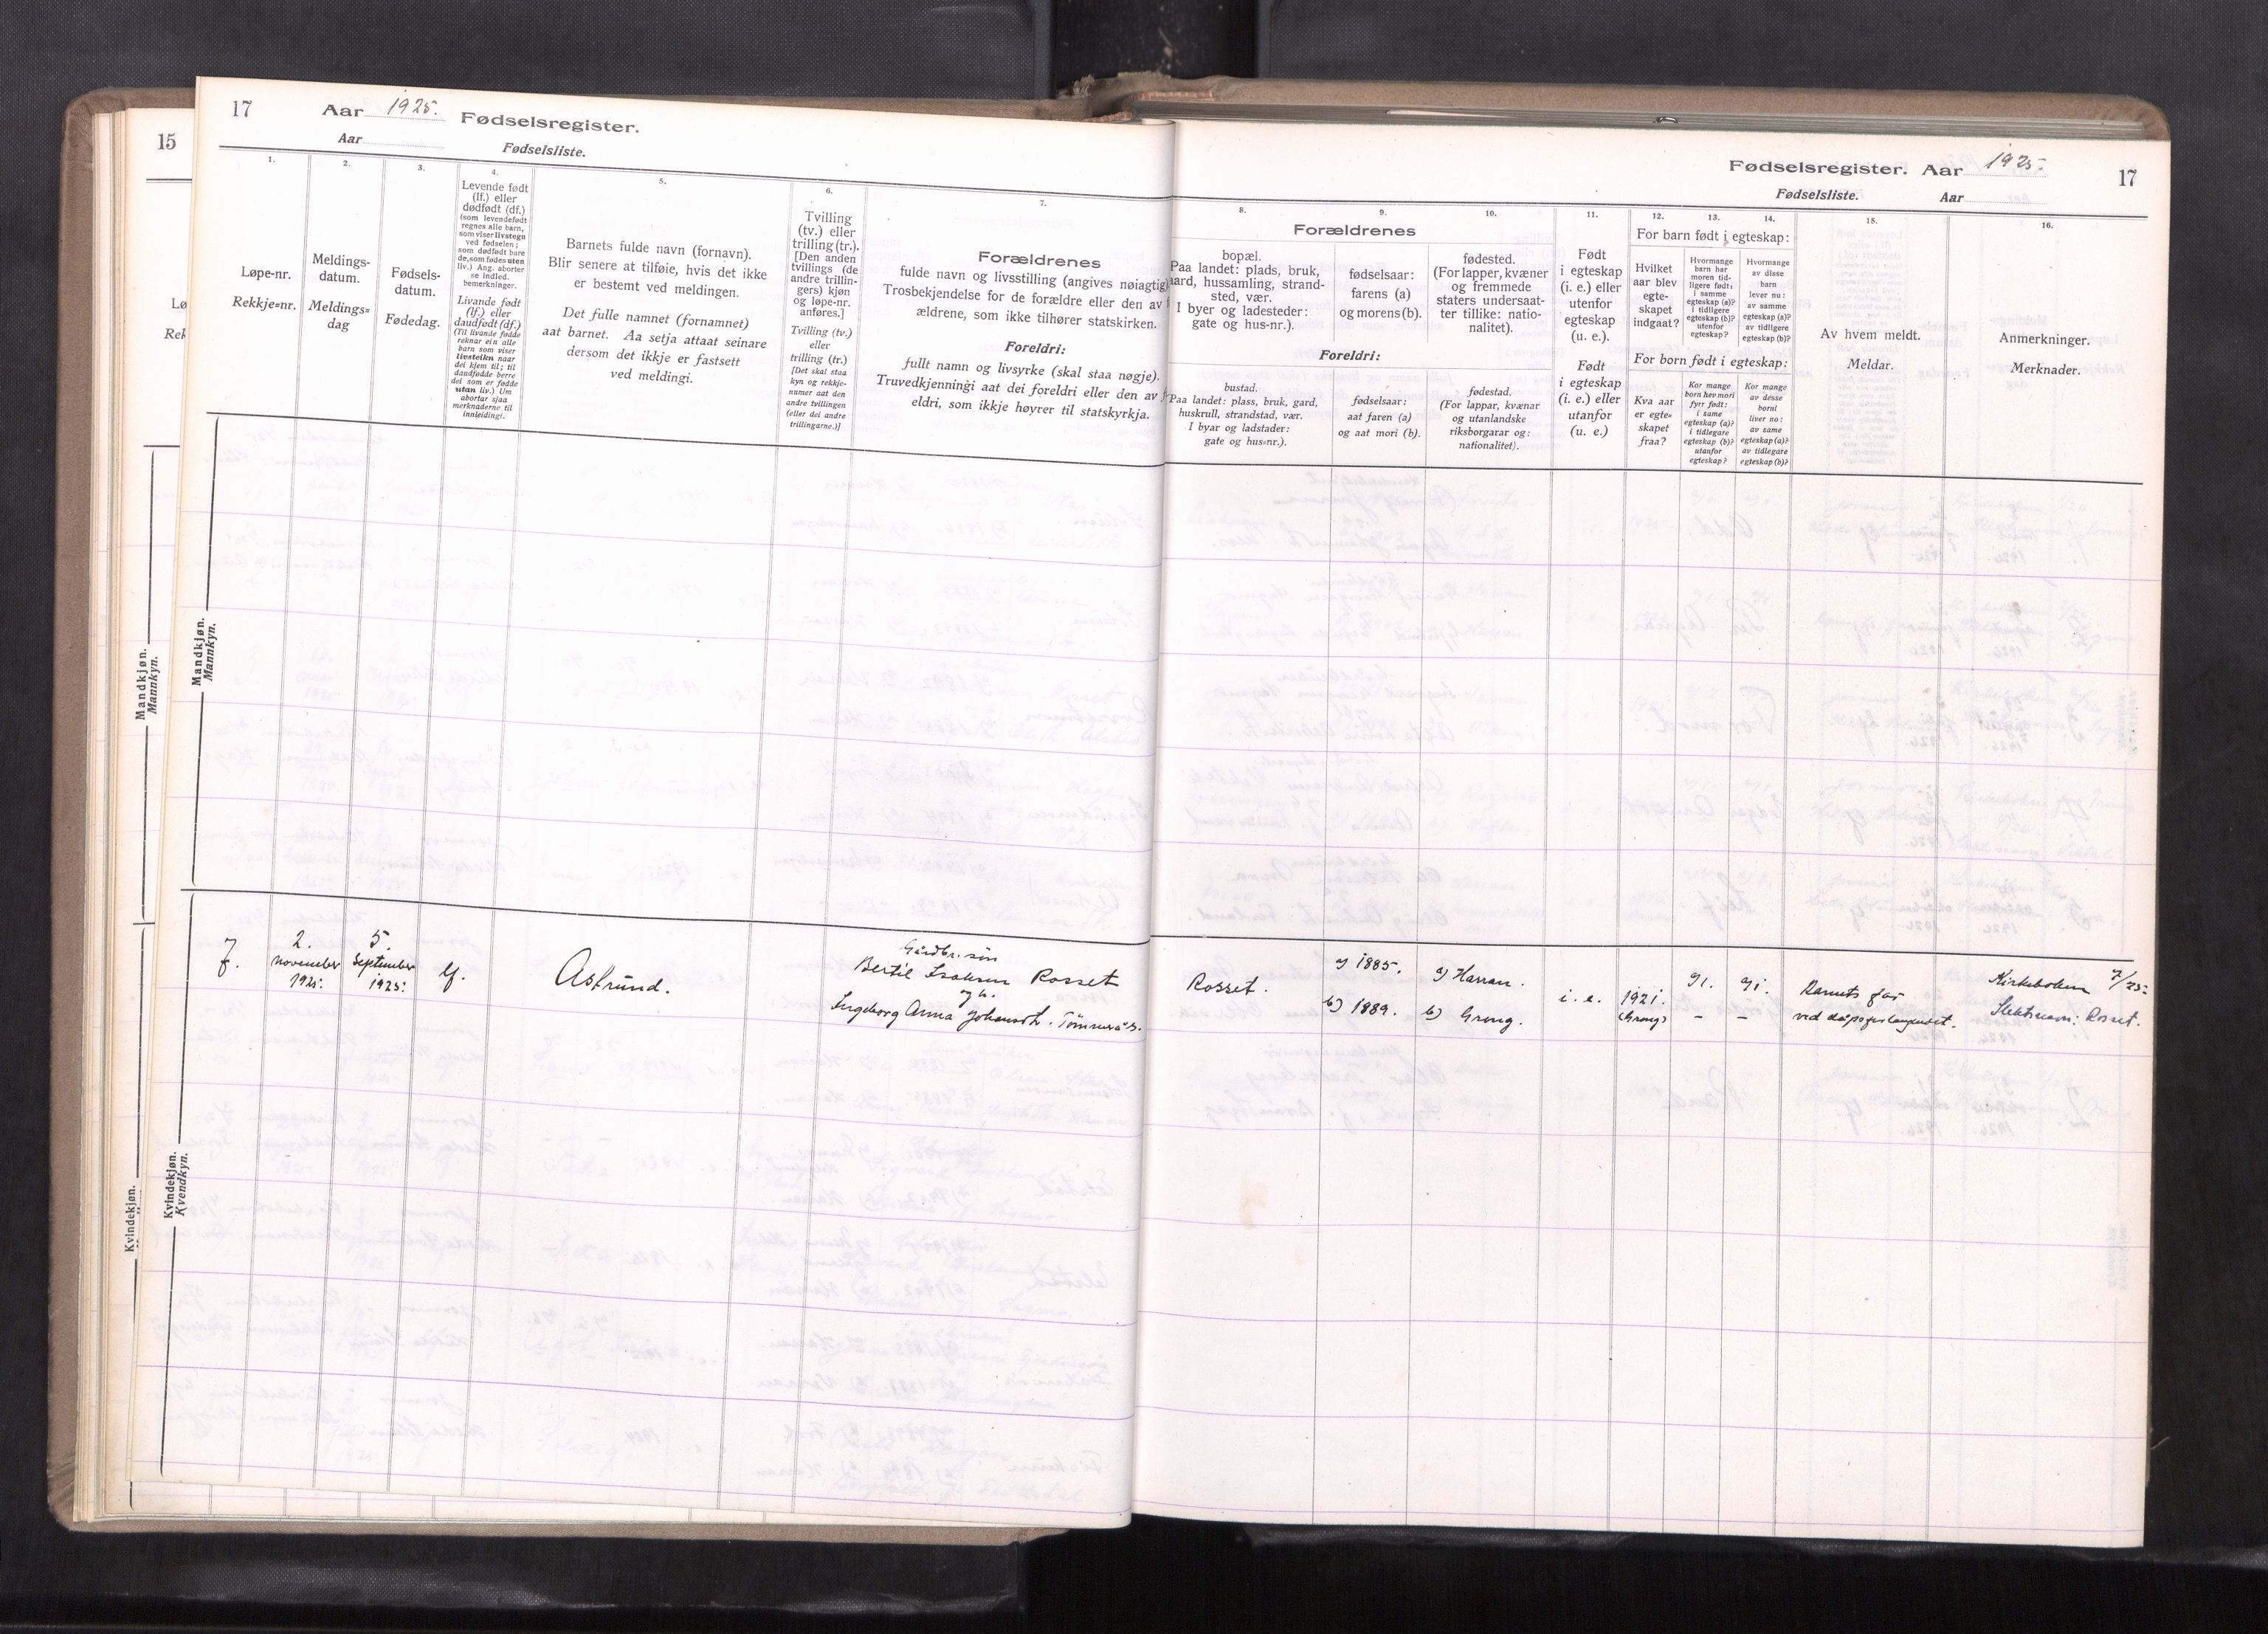 15
Lø
Rek
17
Aar 1925.
Fødselsregister.
Aar
Fødselsliste.
1.
Løpe-nr.
Rekkje=nr.
2.
Meldings-
datum.
Meldings=
dag
3.
Fødsels-
datum.
Fødedag.
4.
Levende født
(lf.) eller
dødfødt (df.)
(som levendefødt
regnes alle barn,
som viser livstegn
ved fødselen;
som dødfødt bare
de, som fødes uten
liv.) Ang. aborter
se indled.
bemerkninger.
Livande født
(lf.) eller
daudfødt (df.)
(Til livande fødde
reknar ein alle
barn som viser
livsteikn naar
dei kjem til; til
daudfødde berre
dei som er fødde
utan liv.) Um
abortar sjaa
merknaderne til
innleidingi.
5.
Barnets fulde navn (fornavn).
Blir senere at tilføie, hvis det ikke
er bestemt ved meldingen.
Det fulle namnet (fornamnet)
aat barnet. Aa setja attaat seinare
dersom det ikkje er fastsett
ved meldingi.
6.
Tvilling
(tv.) eller
trilling (tr.).
[Den anden
tvillings (de
andre trillin-
gers) kjøn
og løpe-nr.
anføres.]
Tvilling (tv.)
eller
trilling (tr.)
[Det skal staa
kyn og rekkje-
numer aat den
andre tvillingen
(eller dei andre
trillingarne.)]
7.
Forældrenes
fulde navn og livsstilling (angives nøiagtig)
Trosbekjendelse for de forældre eller den av
ældrene, som ikke tilhører statskirken.
Foreldri:
fullt namn og livsyrke (skal staa nøgje).
Truvedkjenningi aat dei foreldri eller den av
eldri, som ikkje høyrer til statskyrkja.
Fødselsregister. Aar 1925.
17
Fødselsliste.
Aar
Forældrenes
8.
bopæl.
Paa landet: plads, bruk,
aard, hussamling, strand-
sted, vær.
I byer og ladesteder:
gate og hus-nr.).
Foreldri:
bustad.
Paa landet: plass, bruk, gard,
huskrull, strandstad, vær.
I byar og ladstader:
gate og hus=nr.).
9.
fødselsaar:
farens (a)
og morens (b).
fødselsaar:
aat faren (a)
og aat mori (b).
10.
fødested.
(For lapper, kvæner
og fremmede
staters undersaat-
ter tillike: natio-
nalitet).
fødestad.
(For lappar, kvænar
og utanlandske
riksborgarar og:
nationalitet).
11.
Født
i egteskap
(i. e.) eller
utenfor
egteskap
(u. e.).
Født
i egteskap
(i. e.) eller
utanfor
(u. e.)
For barn født i egteskap:
12.
Hvilket
aar blev
egte-
skapet
indgaat?
13.
Hvormange
barn har
moren tid-
ligere født:
i samme
egteskap (a)?
i tidligere
egteskap (b)?
utenfor
egteskap?
14.
Hvormange
av disse
barn
lever nu:
av samme
egteskap (a)?
av tidligere
egteskap (b)?
For born født i egteskap:
Kva aar
er egte=
skapet
fraa?
Kor mange
born hev mori
fyrr født:
i same
egteskap (a)?
i tidlegare
egteskap (b)?
utanfor
egteskap?
Kor mange
av desse
borni
liver no:
av same
egteskap (a)?
av tidlegare
egteskap (b)?
15.
Av hvem meldt.
Meldar.
16.
Anmerkninger.
Merknader.
Mandkjøn.
Mannkyn.
Mandkjøn.
Mannkyn.
Kvindekjøn.
Kvindekjøn.
Kvendkyn.
7.
2.
november
1925.
5.
September
1925.
lf.
Astrund.
Gårdbr. søn
Bertil Isaksen Rosset
og h.
Ingeborg Anna Johansdtr. Tømmerås.
Rosset.
a) 1885.
b) 1889.
a) Harran.
b) Grong.
i. e.
1921.
(Grong)
a) 1.
–
a) 1.
–
Barnets far
Kirkeboken 7/25.
Slektsnavn: Rosset.